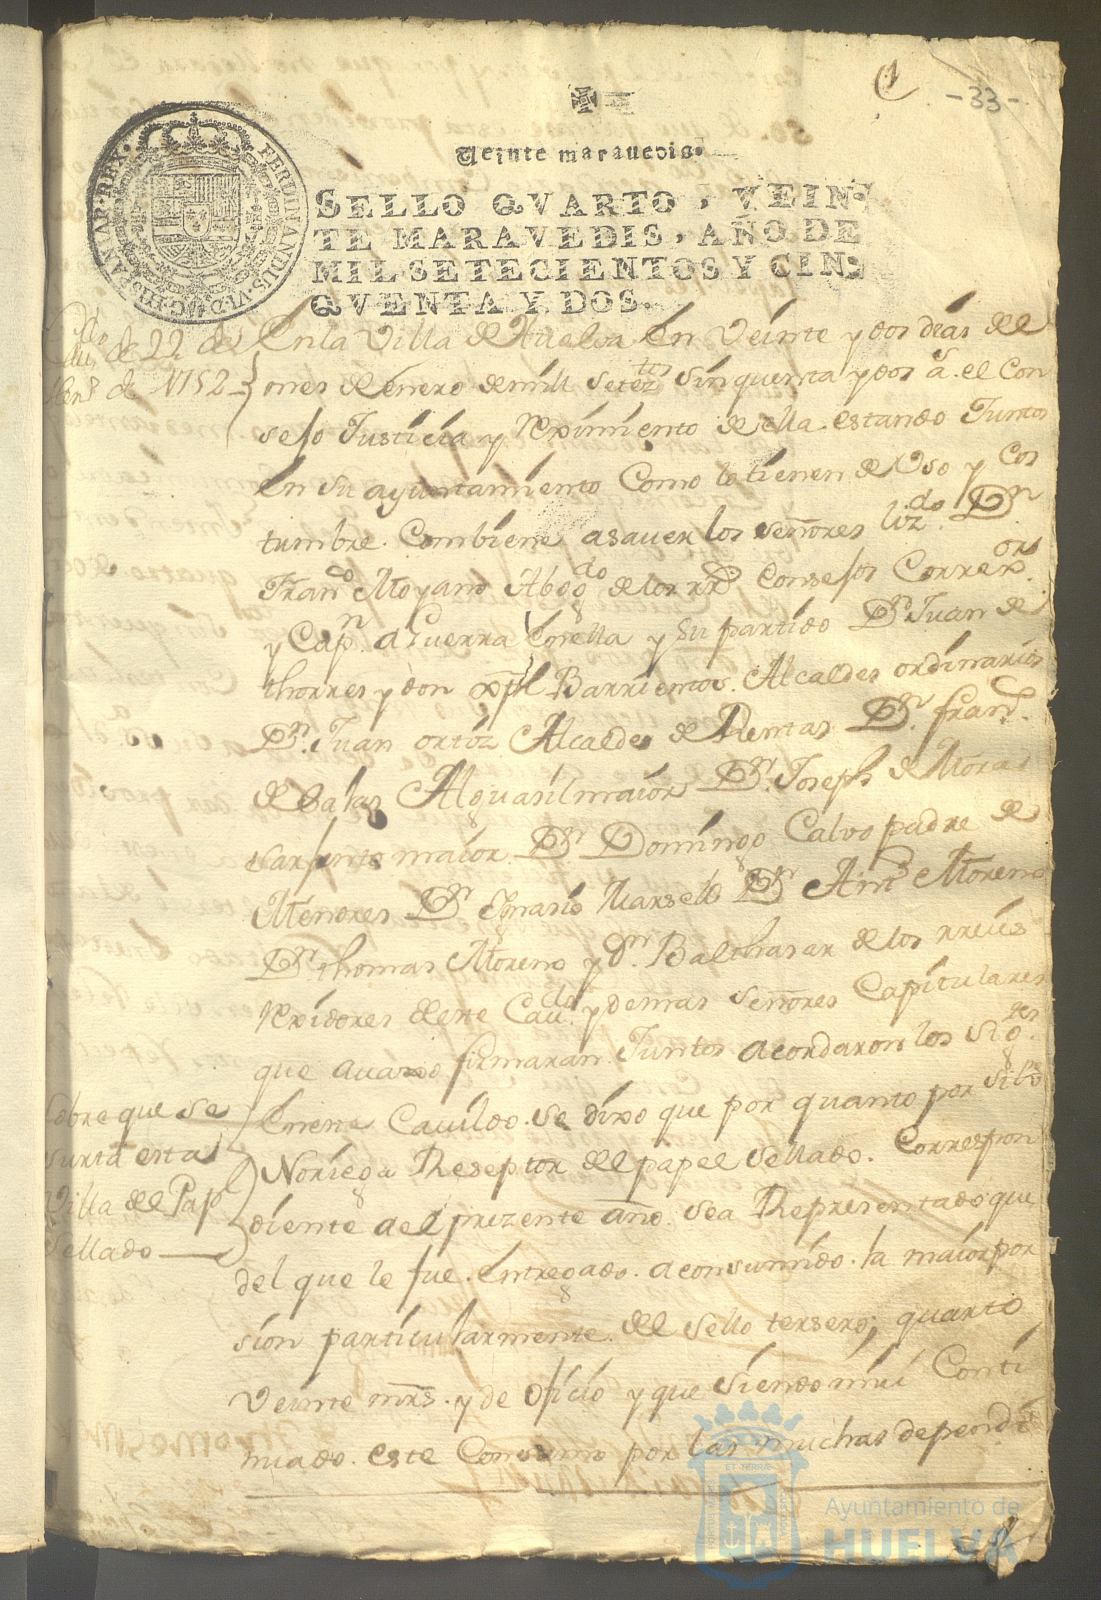 1
-33-
Veinte maravedis.
SELLO QVARTO, VEIN-
TE MARAVEDIS, AÑO DE
MIL SETECIENTOS Y CIN-
QVENTA Y DOS.
FERDINANDUS.VI.D.G.HISPANIAR.REX.
de 22 de
de 1752
En la Villa de Huelva en Veinte y dos dias del
mes de enero de mill setez.tos sinquenta y dos a.s el Con
sejo Justicia y Reximiento de ella estando Juntos
en su ayuntamiento Como lo tienen de Uso y cos
tumbre. Combiene asaver los señores liz.do Dn
Fran.co Moyano Abog.do de los rr.s Consejos Correx.or
y Cap.n a Guerra en ella y su partido D.n Juan de
thorres y don xptl Barrientos. Alcaldes ordinarios
D.n Juan ortiz Alcalde de Rentas D.n fran.co
de Salas Alguasil maior D.n Joseph de Moras
sarjento maior D.n Domingo Calvo padre de
Menores D.n Ignasio Marselo D.n Ant.o Moreno
D.n thomas Moreno y D.n Balthasar de los rreies
Rexidores de este Cav.do y demas señores Capitulares
que avaxo firmaran Juntos acordaron los sig.tes
Sobre que se
surta esta
Villa del Pap.l
Sellado
En este Cavildo se dixo que por quanto por
Noriega Reseptor del papel sellado. Correspon
diente a el prezente año. sea Representado que
del que le fue entregado a consumido la maior por
sion particularmente del sello tersero, quarto
Veinte mrs. y de oficio y que siendo mui Conti
nuado este Consumo por las muchas dependi
Ayuntamiento de
HUELVA